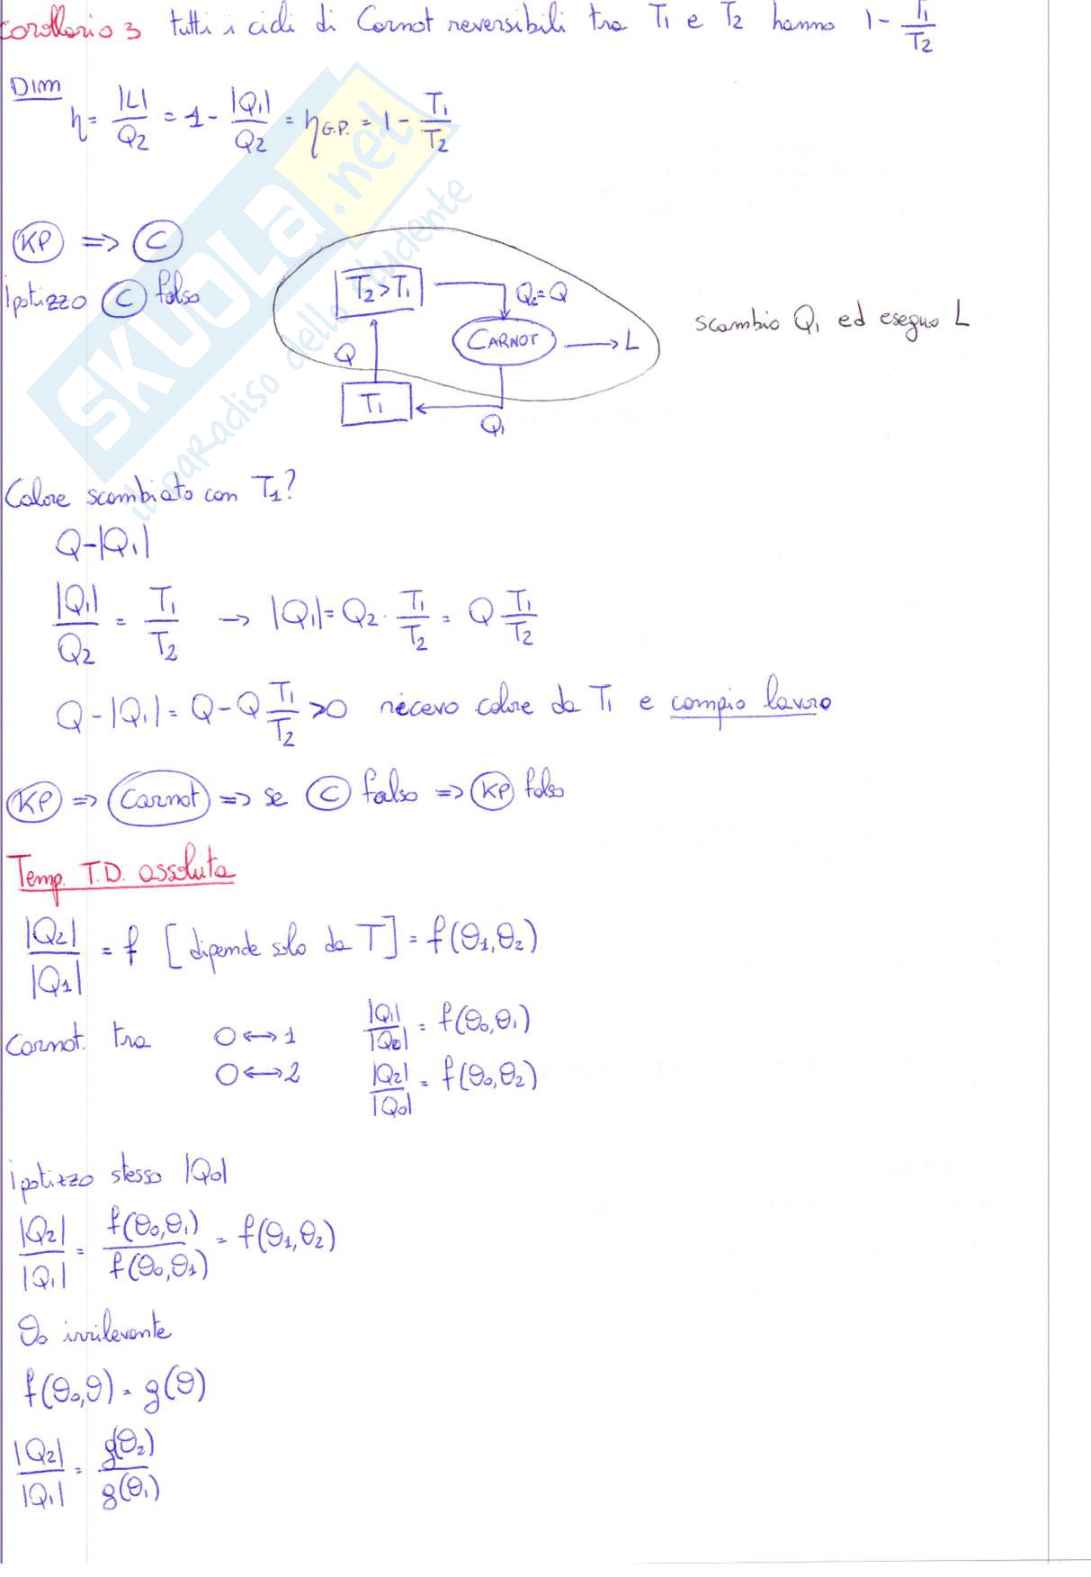 Corollario 3 tutti i cicli di Carnot reversibili tra T₁ e T₂ hanno 1 - T₁/T₂
Dim
η = |L|/Q₂ = 1 - |Q₁|/Q₂ = η G.P. = 1 - T₁/T₂
KP => C
Ipotizzo C falso
T₂>T₁
Q₂=Q
CARNOT → L
Q
T₁
Q₁
scambio Q₁ ed eseguo L
Calore scambiato con T₁?
Q-|Q₁|
|Q₁|/Q₂ = T₁/T₂ → |Q₁| = Q₂ · T₁/T₂ = Q T₁/T₂
Q - |Q₁| = Q - Q T₁/T₂ > 0 ricevo calore da T₁ e compio lavoro
KP => Carnot => se C falso => KP falso
Temp. T.D. assoluta
|Q₂|/|Q₁| = f [dipende solo da T] = f(θ₁,θ₂)
Carnot tra 0 ↔ 1 |Q₁|/|Q₀| = f(θ₀,θ₁)
0 ↔ 2 |Q₂|/|Q₀| = f(θ₀,θ₂)
ipotizzo stesso |Q₀|
|Q₂|/|Q₁| = f(θ₀,θ₁)/f(θ₀,θ₁) = f(θ₁,θ₂)
θ₀ irrilevante
f(θ₀,θ) = g(θ)
|Q₂|/|Q₁| = g(θ₂)/g(θ₁)
SKUOLA.net
il paradiso dello studente